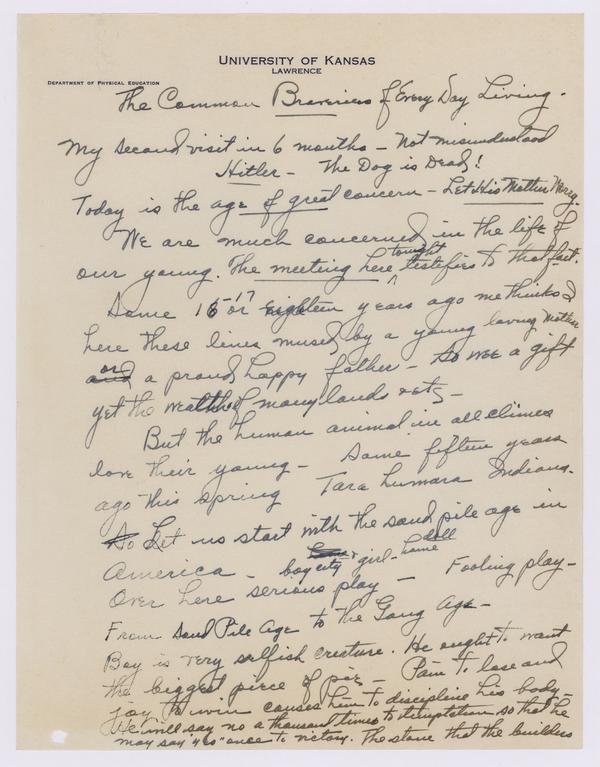 UNIVERSITY OF KANSAS
LAWRENCE
DEPARTMENT OF PHYSICAL EDUCATION
The Common Braveries of Every Day Living.
My second visit in 6 months - Not misunderstood
Hitler - The Dog is Dead!
Today is the age of great concern - Let His Mother Mercy.
We are much concerned in the life of
our young. The meeting here tonight testifies to that fact.
Some 16-17 or eighteen years ago methinks I
here these lines mused by a young loving Mother
and or a proud happy father - So wee a gift
yet the wealth of many lands & etc -
But the human animal in all climes
love their young - Some fifteen years
ago this spring Tara humara Indians.
So Let us start with the sand pile age in
America - boy city & girl - doll home
Over here serious play - Fooling play -
From Sand Pile Age to the Gang Age -
Boy is very selfish creature. He ought to want
the biggest piece of pie - Pain to lose and
joy to win causes him to discipline his body -
He will say no a thousand times to temptation so that he
may say "yes" once to victory. The stone that the builders